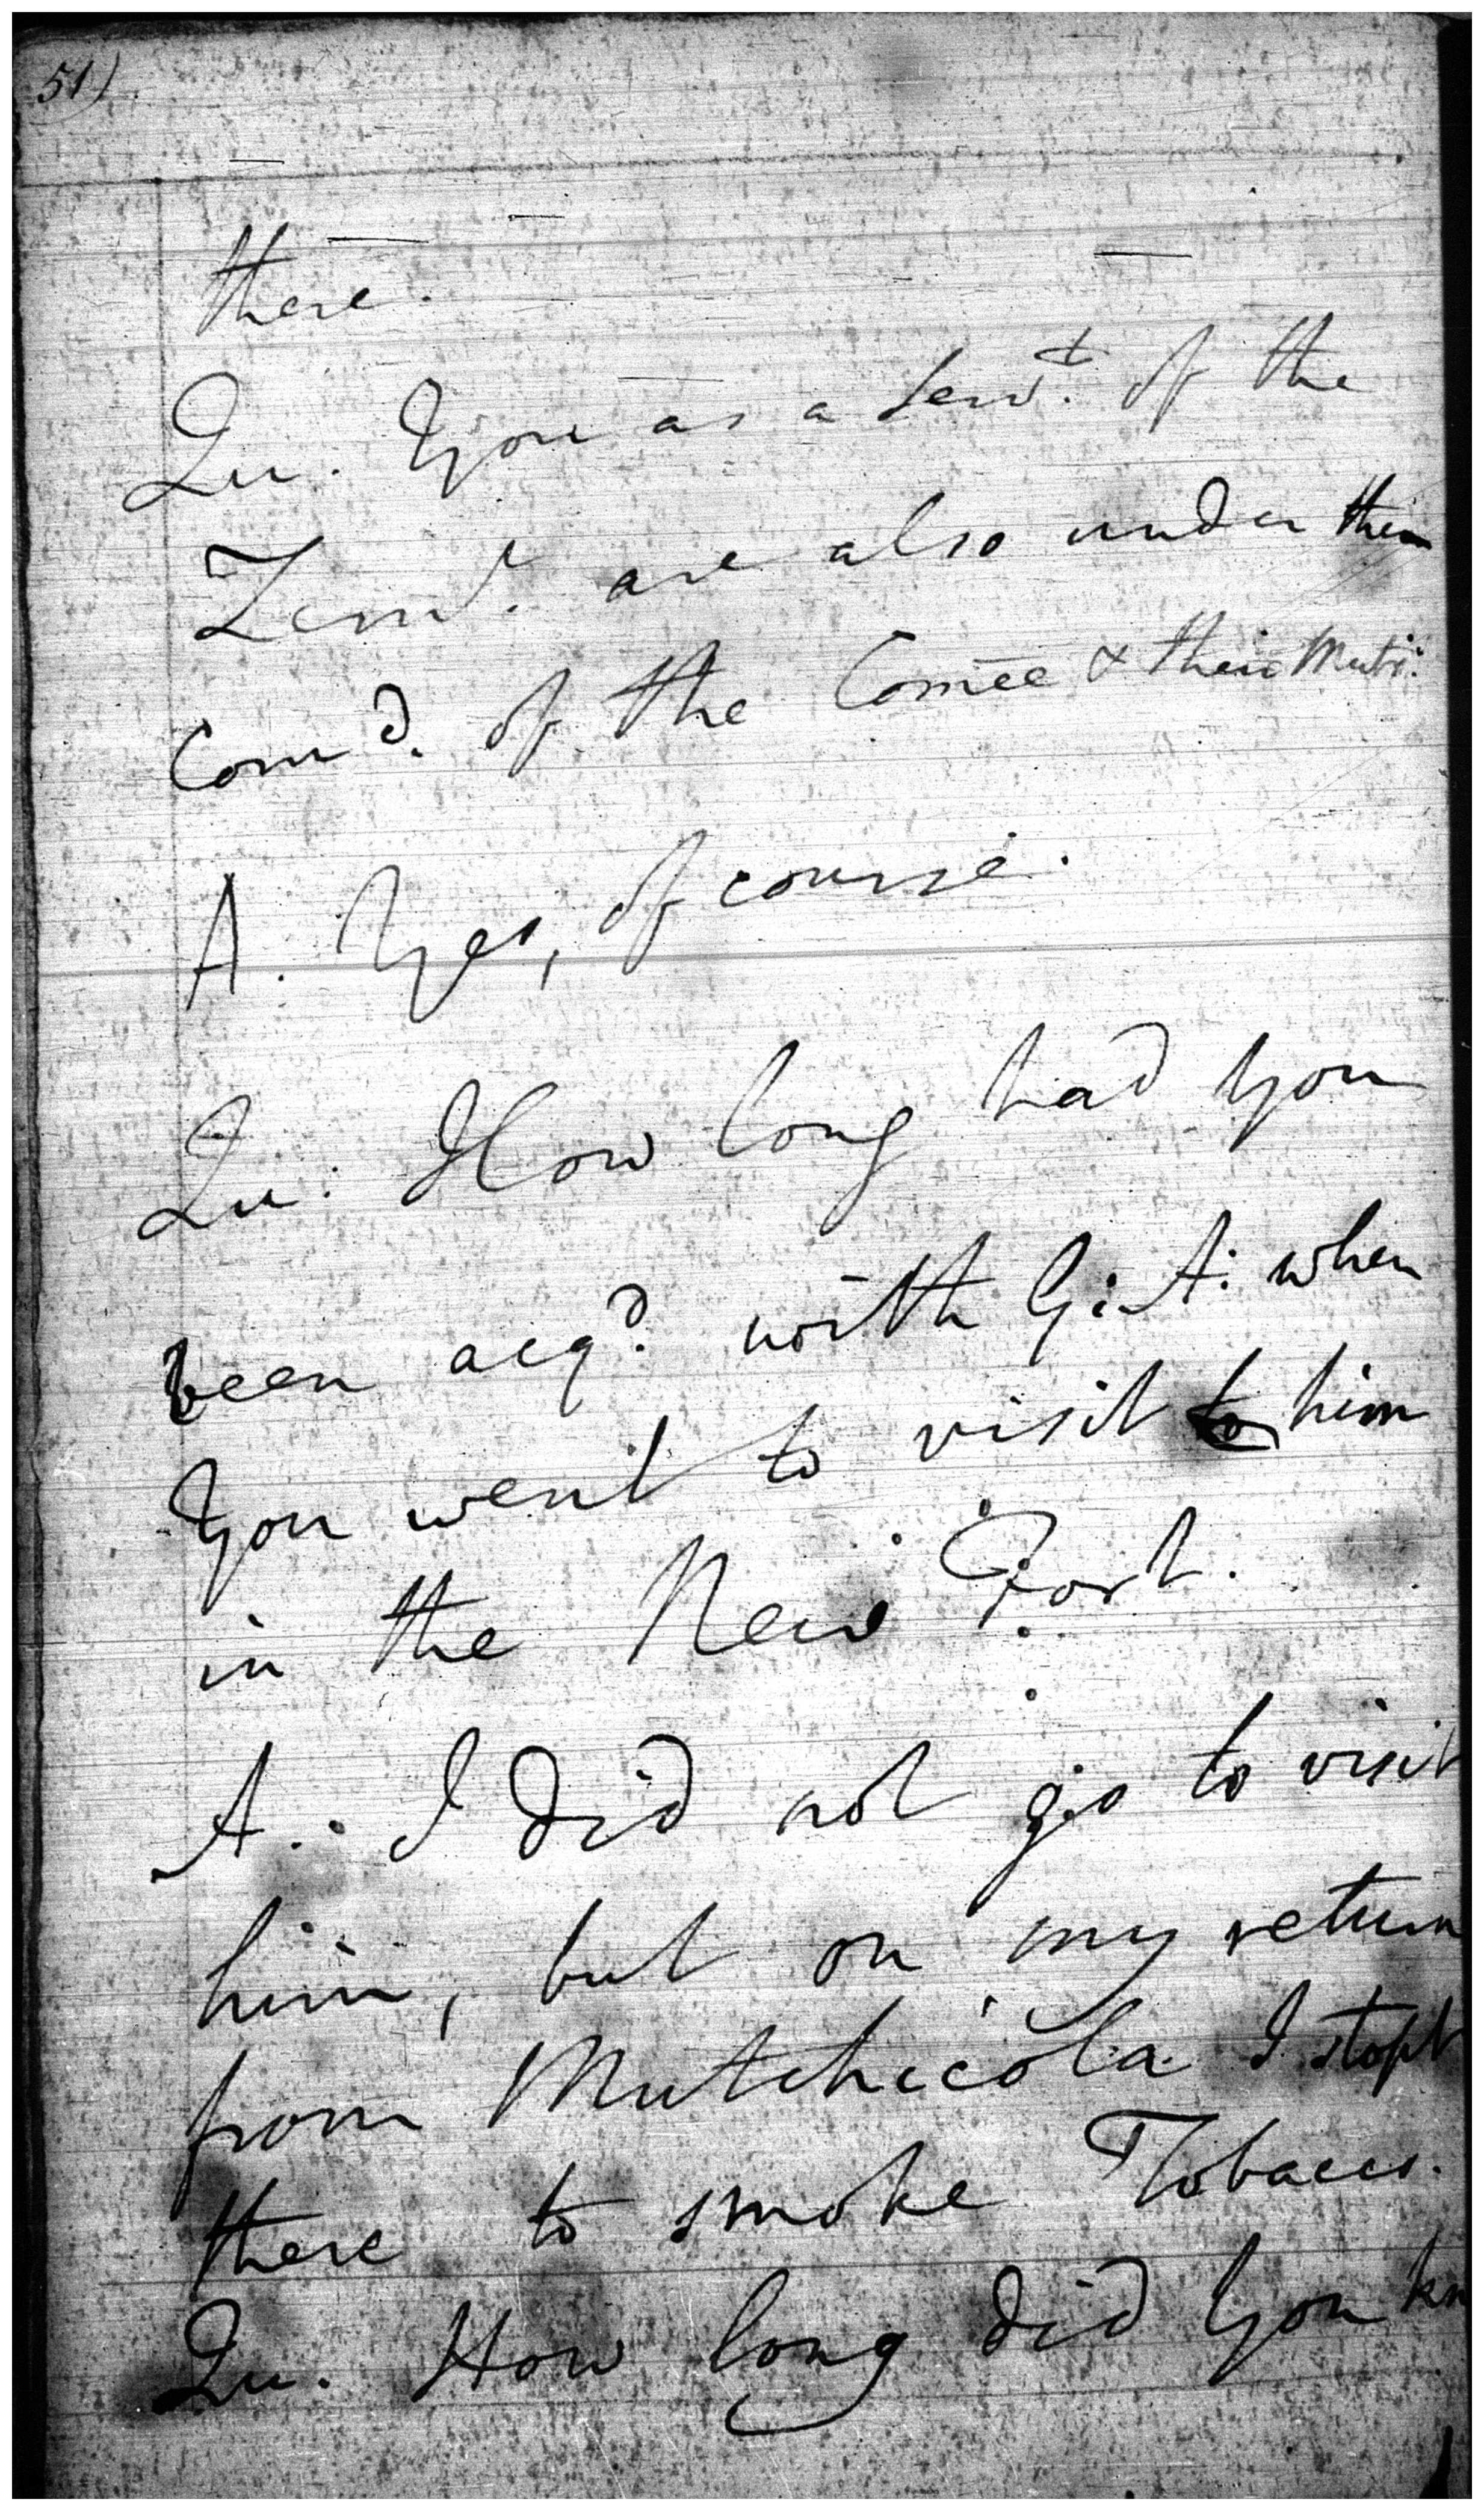 51)
there.
Qu. You as a Servt. of the
Zemr. are also under them
Comd. of the Comēe & their Muts:
A. Yes, of course.
Qu. How long had you
been acqd. with G: A: when
You went to visit to him
in the New Fort.
A. I did not go to visit
him, but on my return
from Mutchicola I stopt
there to smoke Tobacco.
Qu. How long did you kn